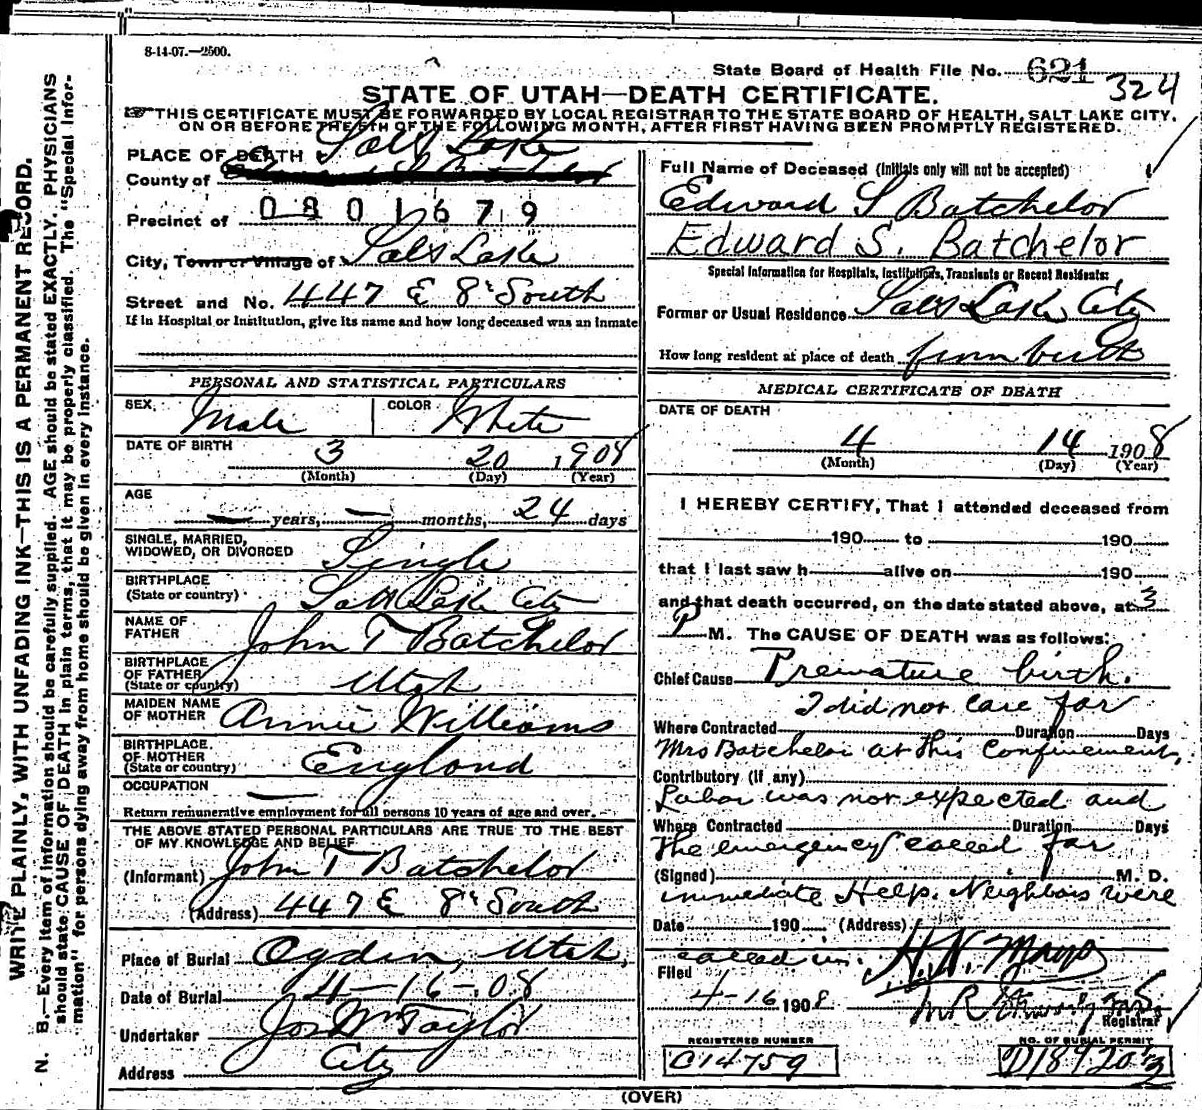 8-14-07.—2500.
State Board of Health File No. 621
324
STATE OF UTAH—DEATH CERTIFICATE.
THIS CERTIFICATE MUST BE FORWARDED BY LOCAL REGISTRAR TO THE STATE BOARD OF HEALTH, SALT LAKE CITY,
ON OR BEFORE THE 5TH OF THE FOLLOWING MONTH, AFTER FIRST HAVING BEEN PROMPTLY REGISTERED.
WRITE PLAINLY, WITH UNFADING INK—THIS IS A PERMANENT RECORD.
N. B.—Every item of information should be carefully supplied. AGE should be stated EXACTLY. PHYSICIANS
should state CAUSE OF DEATH in plain terms, that it may be properly classified. The "Special Infor-
mation" for persons dying away from home should be given in every instance.
PLACE OF DEATH Salt Lake
County of
Precinct of 0801679
City, Town or Village of Salt Lake
Street and No. 447 E 8" South
If in Hospital or Institution, give its name and how long deceased was an inmate
PERSONAL AND STATISTICAL PARTICULARS
SEX Male COLOR White
DATE OF BIRTH 3 20 1908
(Month) (Day) (Year)
AGE
— years, — months, 24 days
SINGLE, MARRIED,
WIDOWED, OR DIVORCED Single
BIRTHPLACE
(State or country) Salt Lake City
NAME OF
FATHER John T Batchelor
BIRTHPLACE
OF FATHER
(State or country) Utah
MAIDEN NAME
OF MOTHER Annie Williams
BIRTHPLACE
OF MOTHER
(State or country) England
OCCUPATION —
Return remunerative employment for all persons 10 years of age and over.
THE ABOVE STATED PERSONAL PARTICULARS ARE TRUE TO THE BEST
OF MY KNOWLEDGE AND BELIEF
(Informant) John T Batchelor
(Address) 447 E 8" South
Place of Burial Ogden, Utah,
Date of Burial 4-16-08
Undertaker Jos Wm Taylor
Address City
Full Name of Deceased (Initials only will not be accepted)
Edward S Batchelor
Edward S. Batchelor
Special Information for Hospitals, Institutions, Transients or Recent Residents:
Former or Usual Residence Salt Lake City
How long resident at place of death from birth
MEDICAL CERTIFICATE OF DEATH
DATE OF DEATH
4 14 1908
(Month) (Day) (Year)
I HEREBY CERTIFY, That I attended deceased from
190 to 190
that I last saw h alive on 190
and that death occurred, on the date stated above, at 3
P M. The CAUSE OF DEATH was as follows:
Chief Cause Premature birth.
I did not care for
Where Contracted Duration Days
Mrs Batchelor at this confinement.
Contributory (If any)
Labor was not expected and
Where Contracted Duration Days
the emergency called for
(Signed) M. D.
immediate Help. Neighbors were
Date 190 (Address)
called in. H. N. Mayo
Filed
4-16 1908
Registrar
REGISTERED NUMBER
C14759
NO. OF BURIAL PERMIT
D18920 1/2
(OVER)